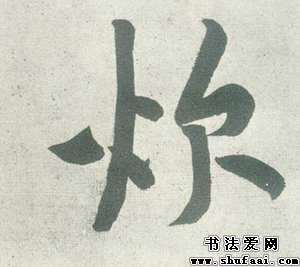 炊
书法爱网
www.shufaai.com